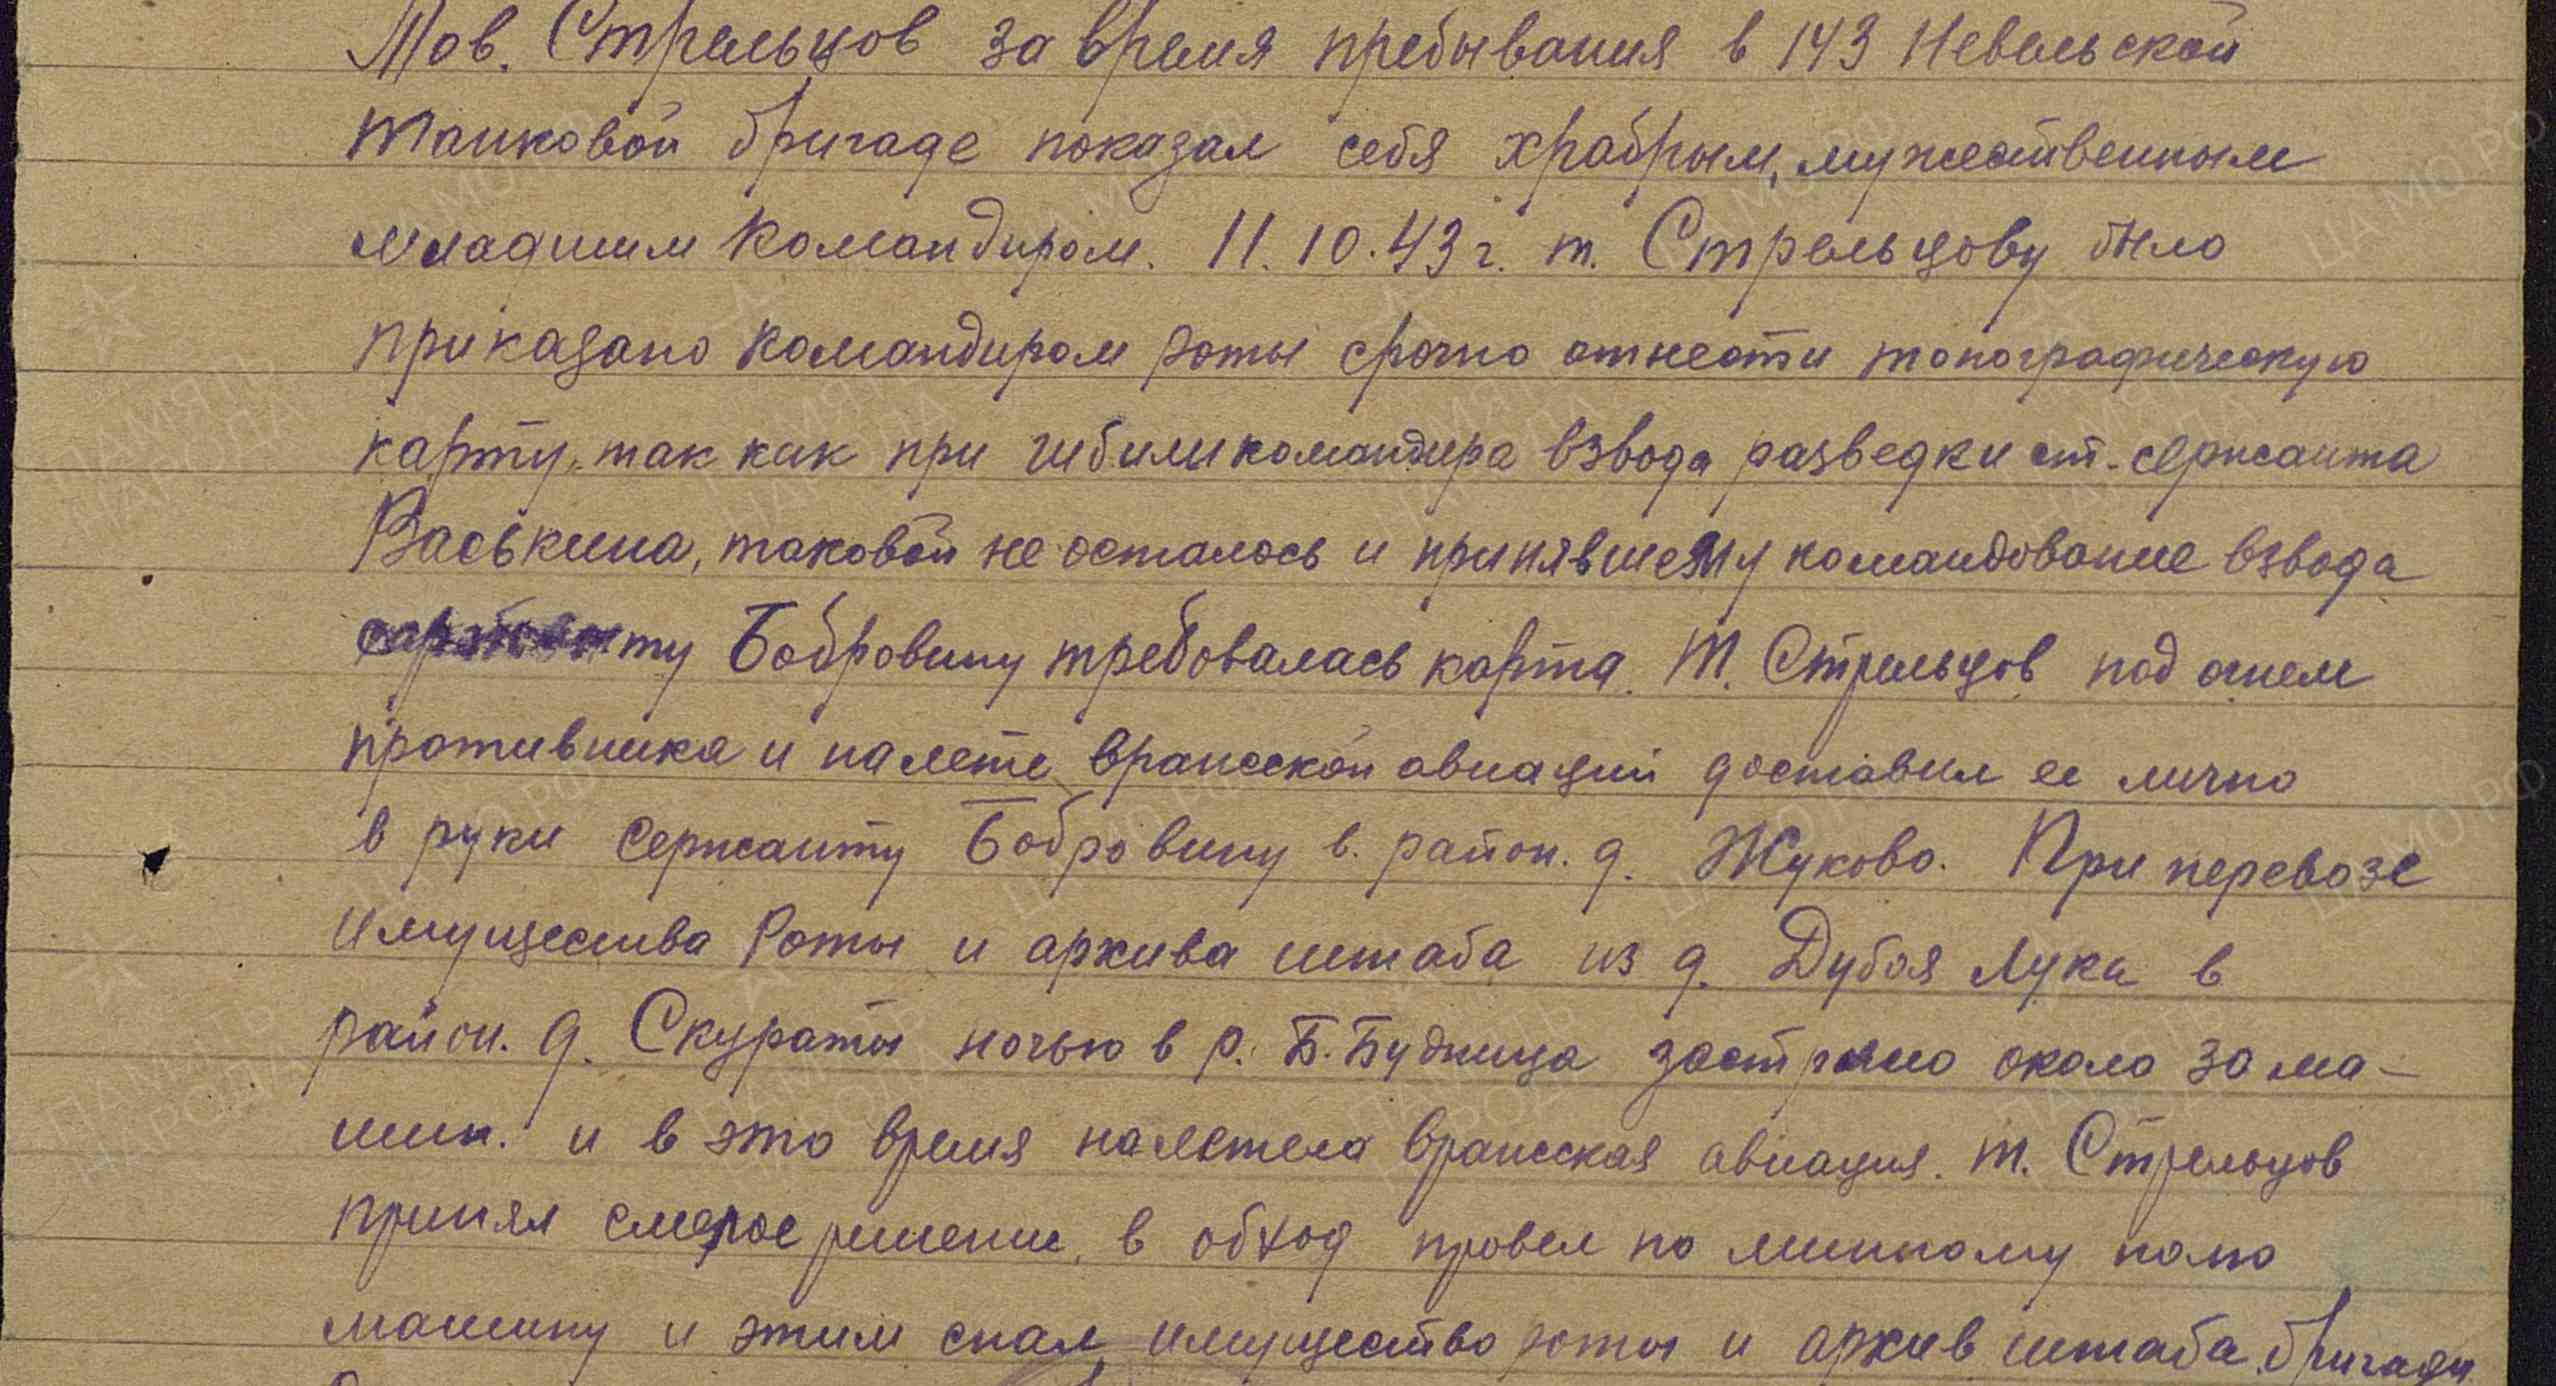 Тов. Стрельцов за время пребывания в 143 Невельской
танковой бригаде показал себя храбрым, мужественным
младшим командиром. 11.10.43 г. т. Стрельцову было
приказано командиром роты срочно отнести топографическую
карту, так как при гибели командира взвода разведки ст. сержанта
Васькина, таковой не осталось и принявшему командование взвода
сержанту Бобровину требовалась карта. Т. Стрельцов под огнем
противника и налете вражеской авиации доставил ее лично
в руки сержанту Бобровину в район. д. Жуково. При перевозе
имущества роты и архива штаба из д. Дубоя Лука в
район. д. Скураты ночью в р. Б. Будница застряло около 30 ма-
шин. и в это время налетела вражеская авиация. т. Стрельцов
принял смелое решение, в обход провел по минному полю
машину и этим спас имущество роты и архив штаба бригады
ЦАМО.РФ
ПАМЯТЬ НАРОДА